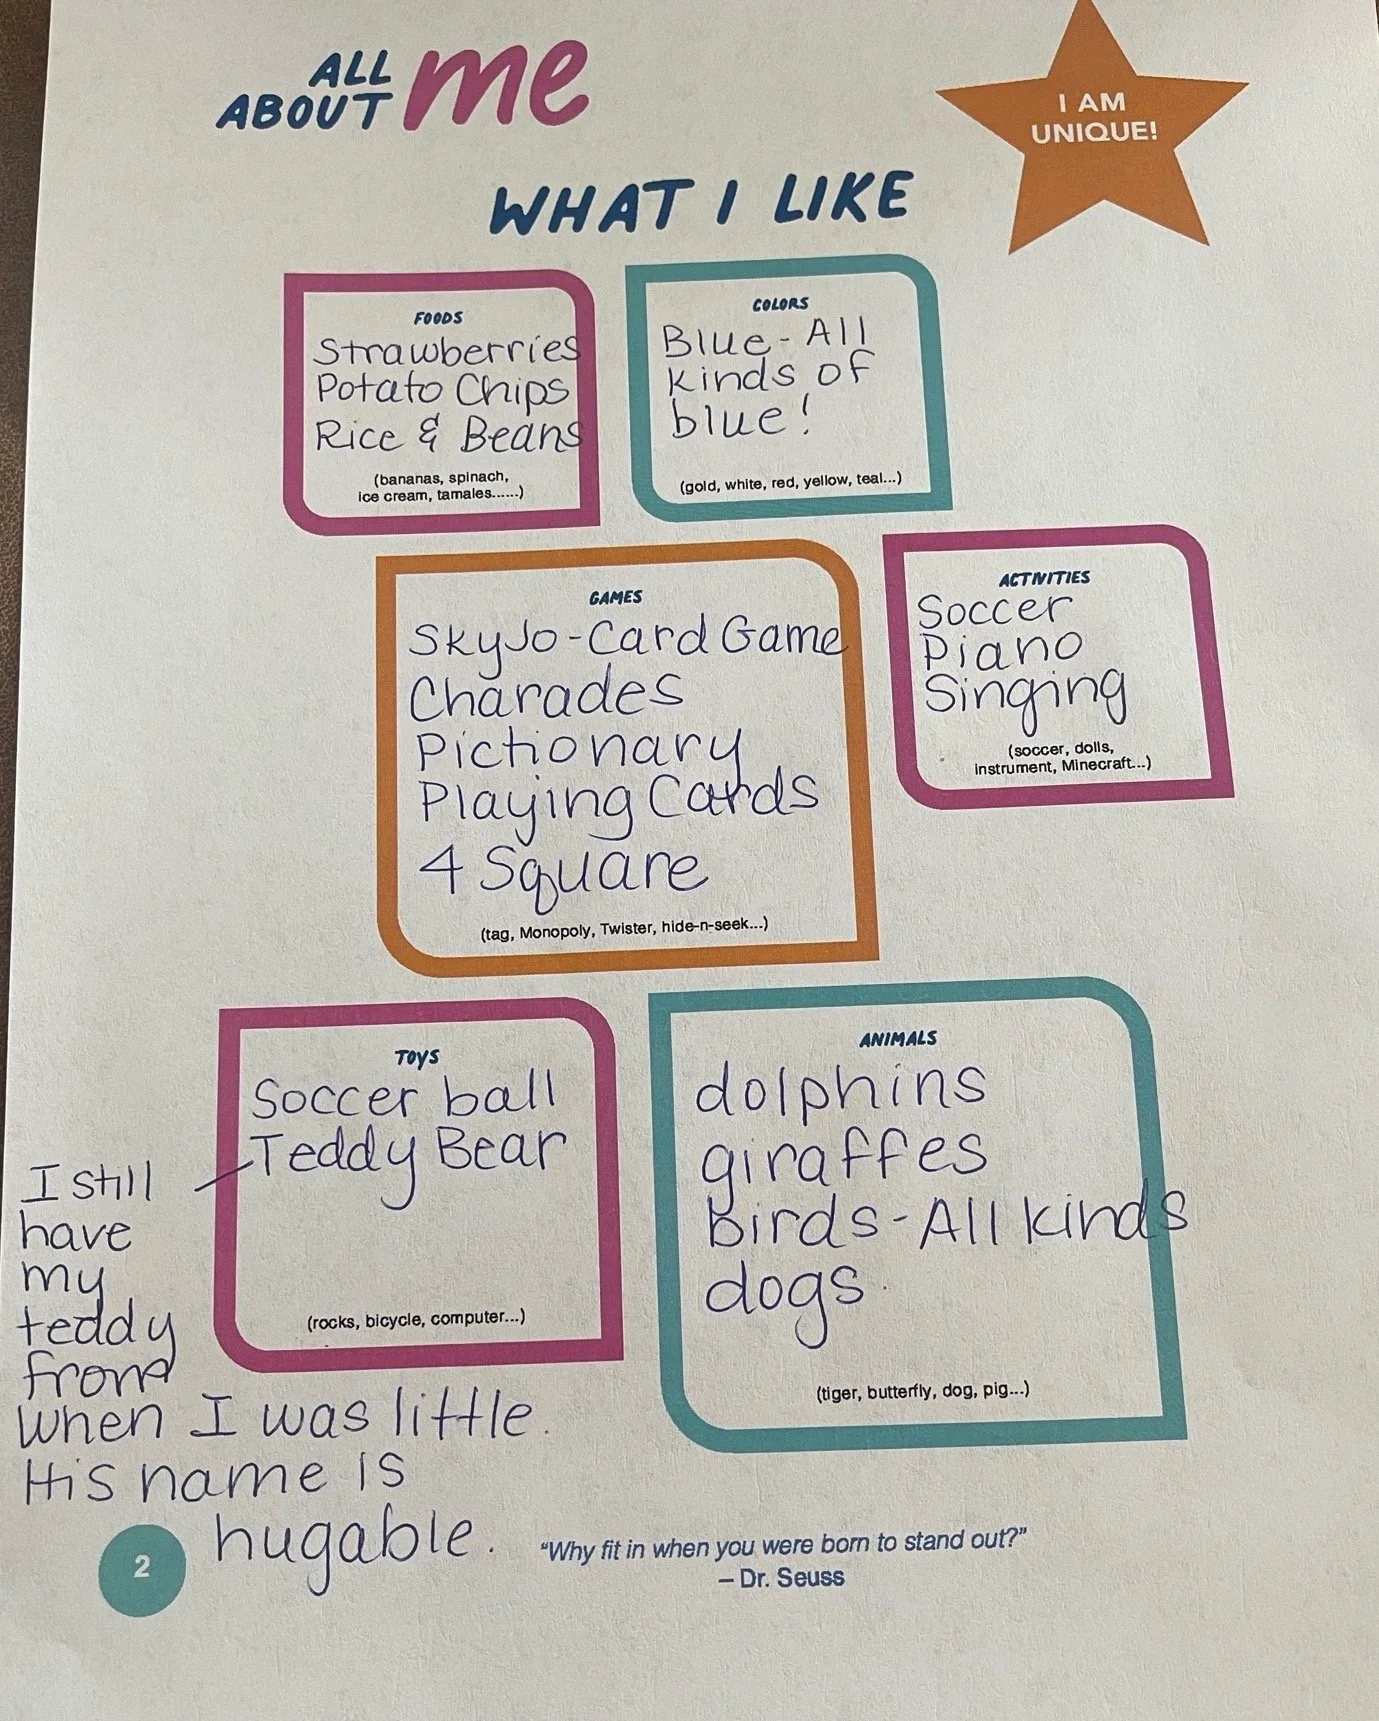 ALL
ABOUT me
I AM
UNIQUE!
WHAT I LIKE
FOODS
Strawberries
Potato Chips
Rice & Beans
(bananas, spinach,
ice cream, tamales......)
COLORS
Blue - All
kinds of
blue!
(gold, white, red, yellow, teal...)
GAMES
SkyJo - Card Game
Charades
Pictionary
Playing Cards
4 Square
(tag, Monopoly, Twister, hide-n-seek...)
ACTIVITIES
Soccer
Piano
Singing
(soccer, dolls,
instrument, Minecraft...)
TOYS
Soccer ball
Teddy Bear
(rocks, bicycle, computer...)
I still
have
my
teddy
from
when I was little.
His name is
hugable.
ANIMALS
dolphins
giraffes
Birds - All kinds
dogs
(tiger, butterfly, dog, pig...)
2
"Why fit in when you were born to stand out?"
– Dr. Seuss